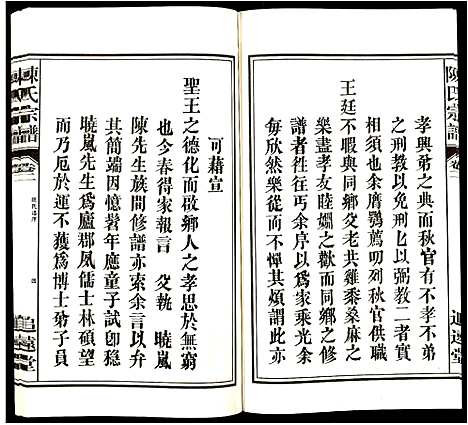 陳氏宗譜
卷二
孝興弟之典而秋官有不孝不弟
之刑敎以免刑以弼敎二者實
相須也余膺鶚薦叨列秋官供職
王廷不暇與同鄉父老共雞黍桑麻之
樂盡孝友睦婣之歡而同鄉之修
譜者徃徃丐余序以爲家乘光余
每欣然樂從而不憚其煩謂此亦
可藉宣
聖王之德化而啟鄉人之孝思於無窮
也今春得家報言父執曉嵐
陳先生族間修譜亦索余言以弁
其簡端因憶曩年應童子試卽稔
曉嵐先生爲廬郡夙儒士林碩望
而乃厄於運不獲爲博士弟子員
陳氏宗譜
卷二
追遠堂